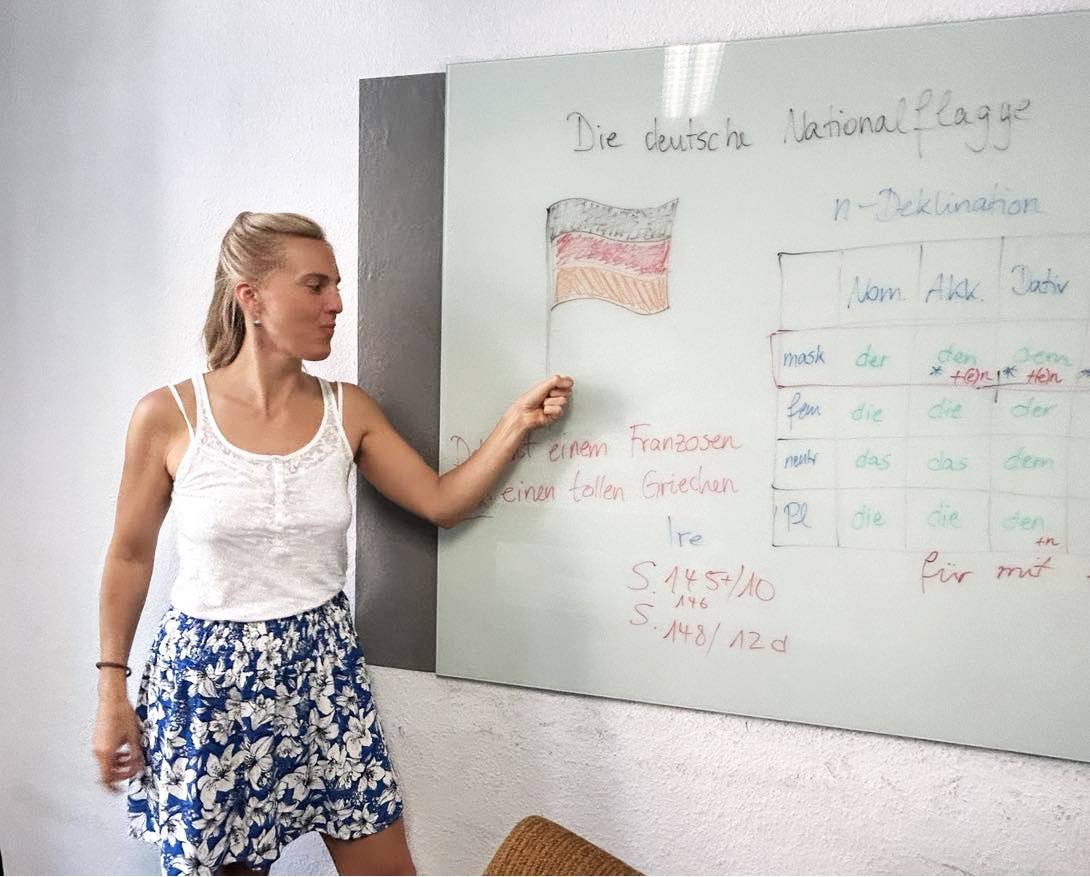 Die deutsche Nationalflagge
n-Deklination
Nom. Akk. Dativ
mask der den dem
* +(e)n * +(e)n *
fem die die der
neutr das das dem
Pl die die den
+n
für mit
einem Franzosen
einen tollen Griechen
Ire
S. 145+/10
146
S. 148/ 12d